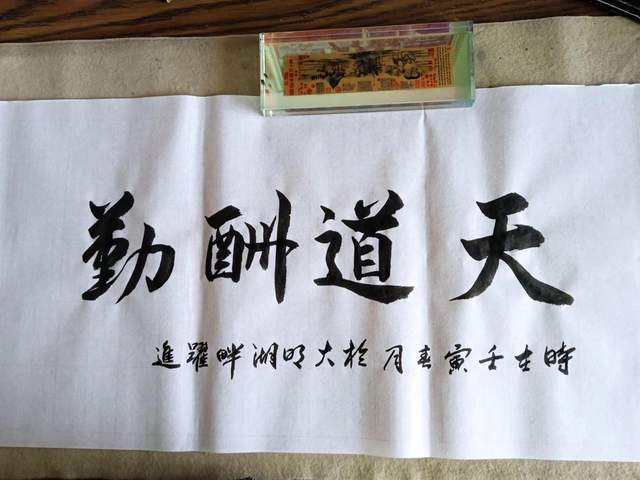 天道酬勤
時在壬寅春月於大明湖畔躍進